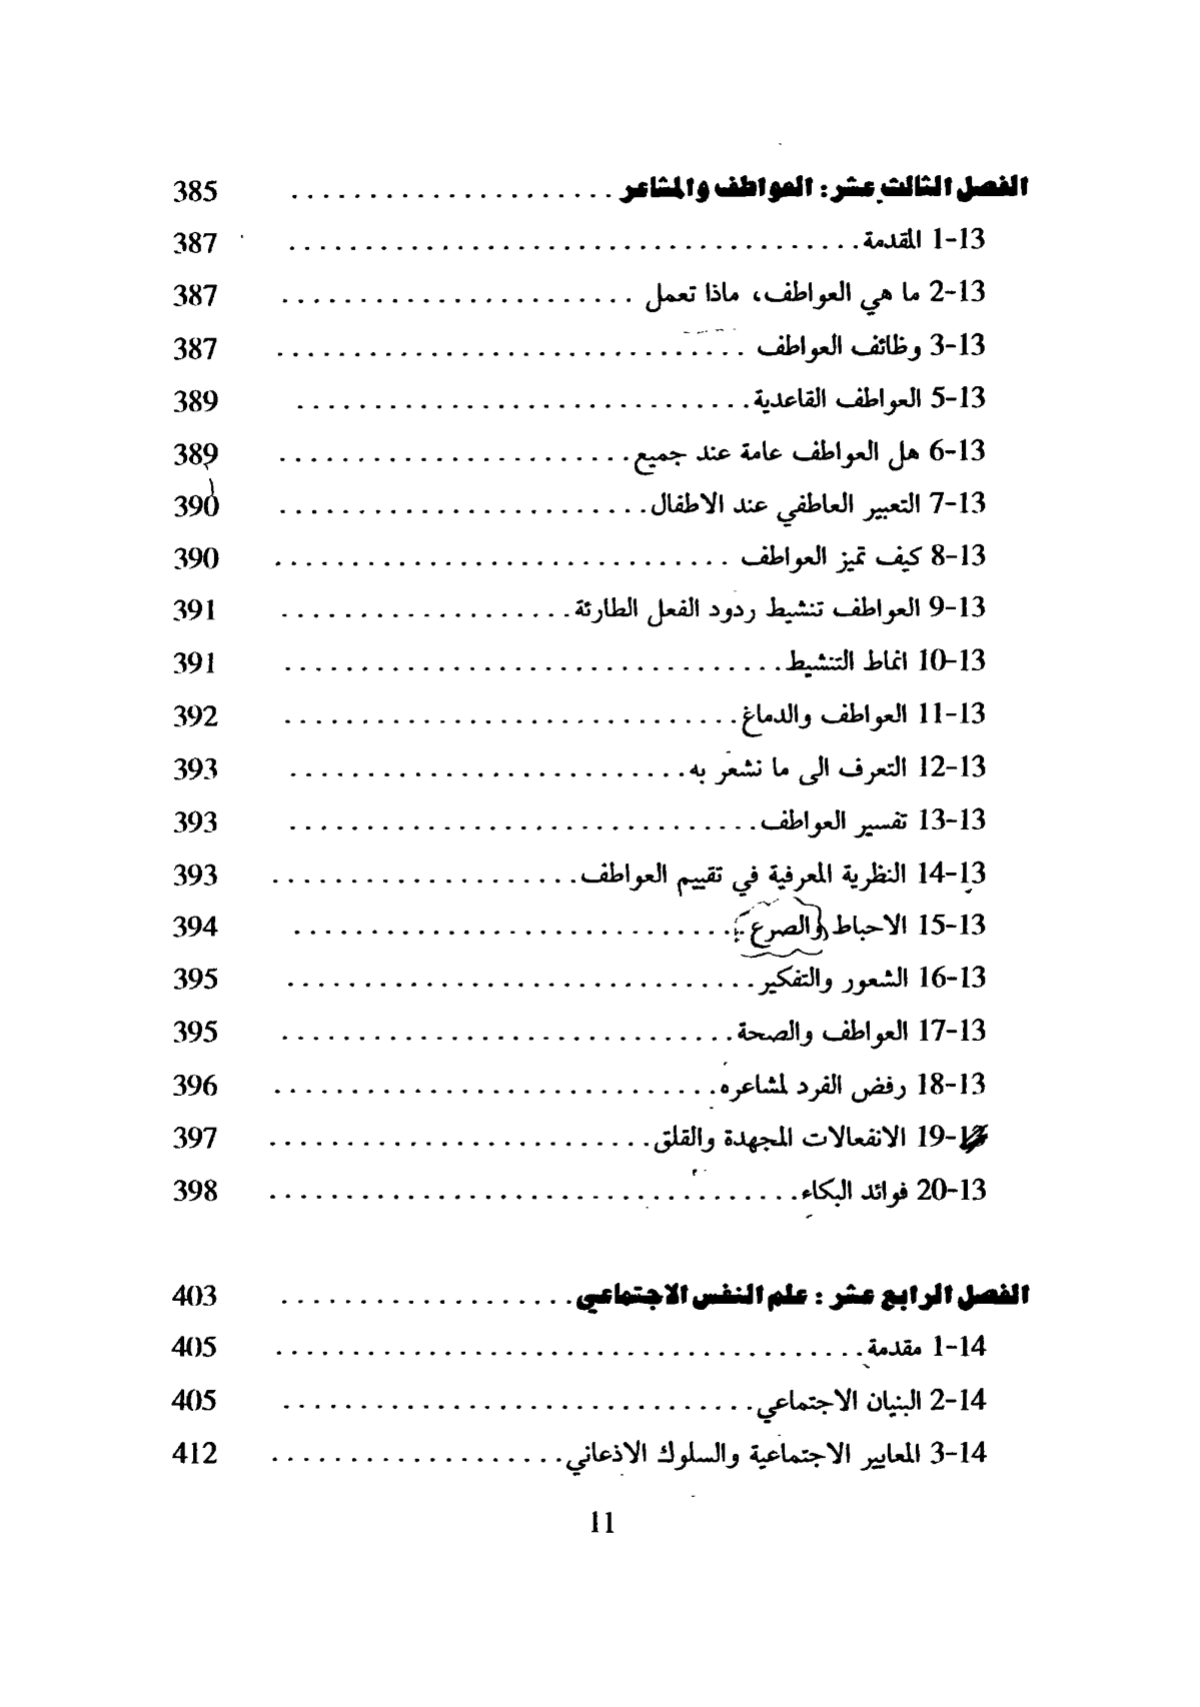 الفصل الثالث عشر: العواطف والمشاعر ..................... 385
1-13 المقدمة ..................................... 387
2-13 ما هي العواطف، ماذا تعمل ....................... 387
3-13 وظائف العواطف ............................... 387
5-13 العواطف القاعدية .............................. 389
6-13 هل العواطف عامة عند جميع ....................... 389
7-13 التعبير العاطفي عند الاطفال ........................ 390
8-13 كيف تميز العواطف .............................. 390
9-13 العواطف تنشيط ردود الفعل الطارئة ................... 391
10-13 انماط التنشيط ................................. 391
11-13 العواطف والدماغ .............................. 392
12-13 التعرف الى ما نشعر به .......................... 393
13-13 تفسير العواطف ............................... 393
14-13 النظرية المعرفية في تقييم العواطف .................... 393
15-13 الاحباط والصرع ............................. 394
16-13 الشعور والتفكير ............................... 395
17-13 العواطف والصحة .............................. 395
18-13 رفض الفرد لمشاعره ............................. 396
19-13 الانفعالات المجهدة والقلق ......................... 397
20-13 فوائد البكاء ................................... 398
الفصل الرابع عشر: علم النفس الاجتماعي ................... 403
1-14 مقدمة ....................................... 405
2-14 البنيان الاجتماعي ............................... 405
3-14 المعايير الاجتماعية والسلوك الاذعاني ................... 412
11